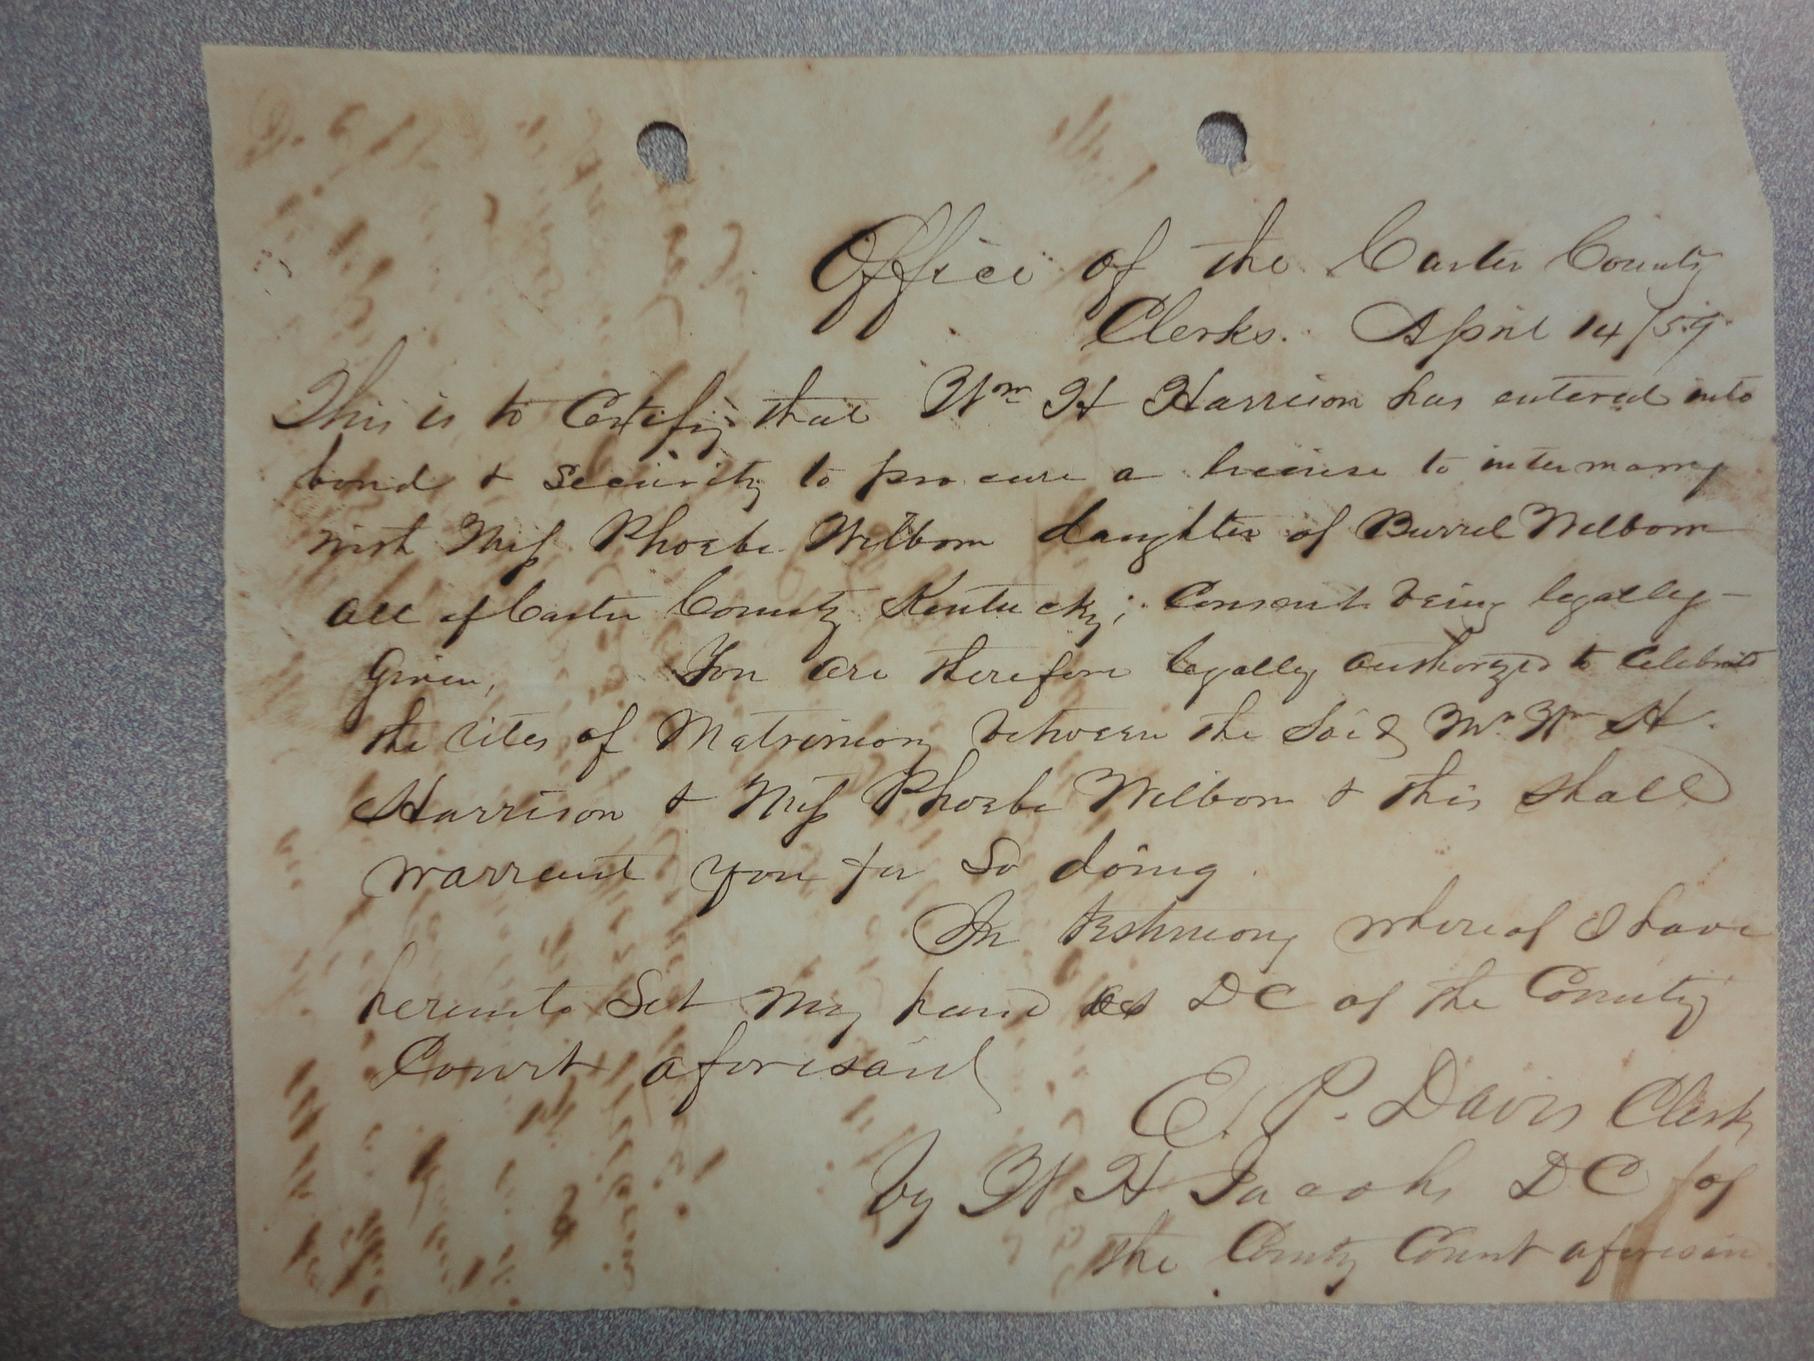 Office of the Carter County
Clerks. April 14/59.
This is to Certify that Wm H Harrison has entered into
bond & security to procure a license to intermarry
with Miss Phoebe Wilborn daughter of Burrel Wilborn
all of Carter County Kentucky; Consent being legally
Given, You are therefore legally authorized to Celebrate
the rites of Matrimony between the Said Mr. Wm H.
Harrison & Miss Phoebe Wilborn & this shall
warrant you for So doing.
In testimony whereof I have
hereunto Set my hand as DC of the County
Court aforesaid
E. P. Davis Clerk
by W H Jacobs DC of
the County Court aforesaid